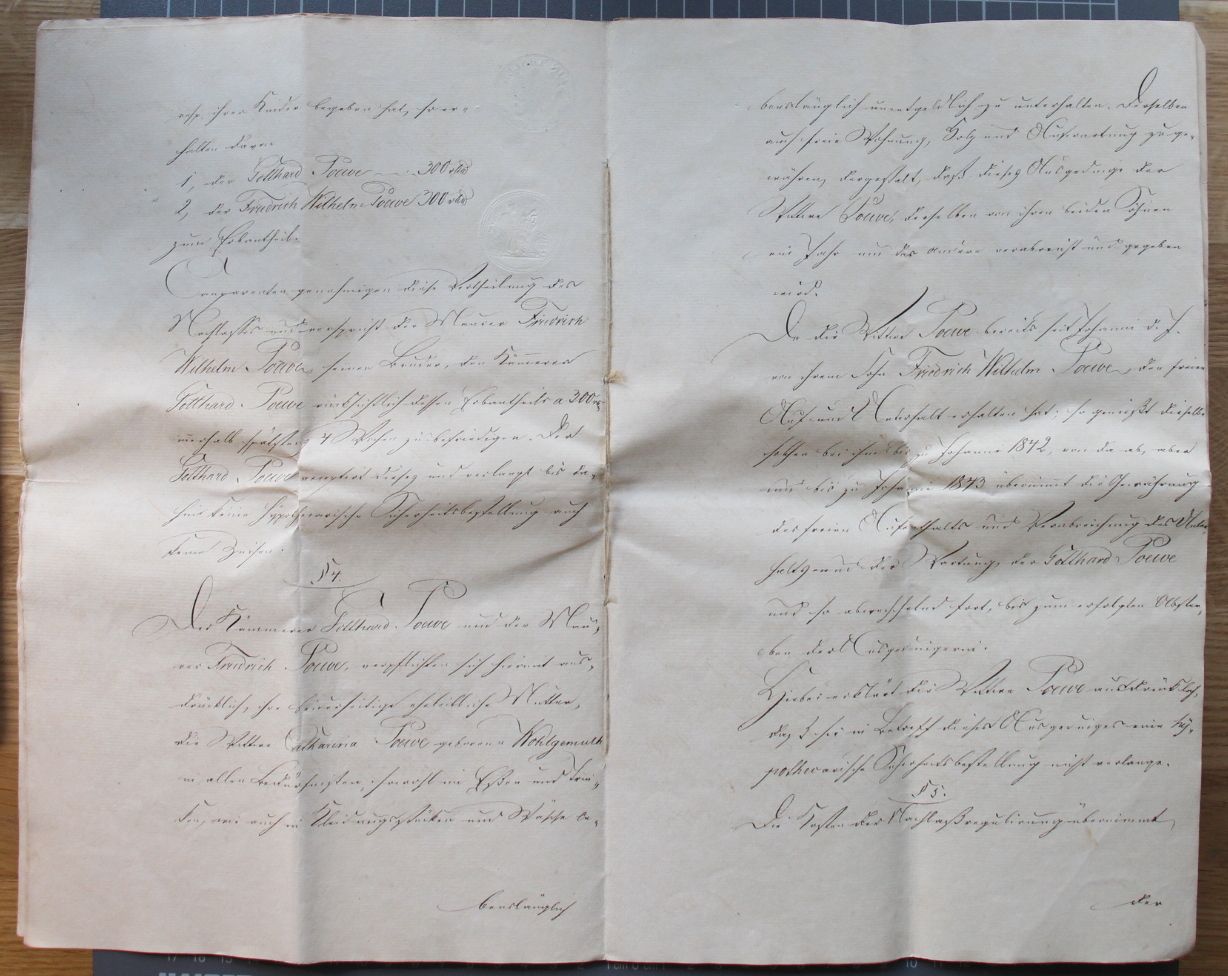 resp. ihrer Kinder begeben hat, so er=
halten davon
1, der Gotthard Poewe — 300 rtl
2, der Friedrich Wilhelm Poewe 300 rtl
zum Erbantheil.
Comparenten genehmigen diese Vertheilung des
Nachlasses und verspricht der Maurer Friedrich
Wilhelm Poewe seinem Bruder, dem Kämmerer
Gotthard Poewe rücksichtlich dessen Erbantheils a 300 rtl
innerhalb spätstens 4 Wochen zu befriedigen. Der
Gotthard Poewe acceptirt dieses und verlangt bis da=
hin keine hypothecarische Sicherheitsbestellung auch
keine Zinsen.
§ 4.
Der Kämmerer Gotthard Poewe und der Mau=
rer Friedrich Poewe, verpflichten sich hiermit aus=
drücklich, ihre beiderseitige eheleibliche Mutter,
die Wittwe Catharina Poewe geborene Wohlgemuth
in allen Bedürfnissen, sowohl in Eßen und Trin=
ken, wie auch in Kleidungsstücken und Wäsche le=
benslänglich
benslänglich unentgeldlich zu unterhalten. Derselben
auch freie Wohnung, Holz und Aufwartung zu ge=
währen, dergestalt, daß dieses Ausgedinge der
Wittwe Poewe, derselben von ihren beiden Söhnen
ein Jahr um das andere verabreicht und gegeben
wird.
Da die Wittwe Poewe bereits seit Johanni d. J.
von ihrem Sohn Friedrich Wilhelm Poewe, den freien
Auf- und Unterhalt erhalten hat; so genießt dieselbe
solchen bei ihm bis zu Johanni 1842, von da ab, aber
und bis zu Johanni 1843 übernimmt die Gewährung
des freien Aufenthalts und Verabreichung des Unter=
halts und der Wartung der Gotthard Poewe
und so abwechselnd fort, bis zum erfolgten Abster=
ben der Ausgedingerin.
Hiebei erklärt die Wittwe Poewe ausdrücklich,
daß sie in Betreff dieses Ausgedinges eine hy=
pothecarische Sicherheitsbestellung nicht verlange.
§ 5.
Die Kosten der Nachlaßregulirung übernimmt
der